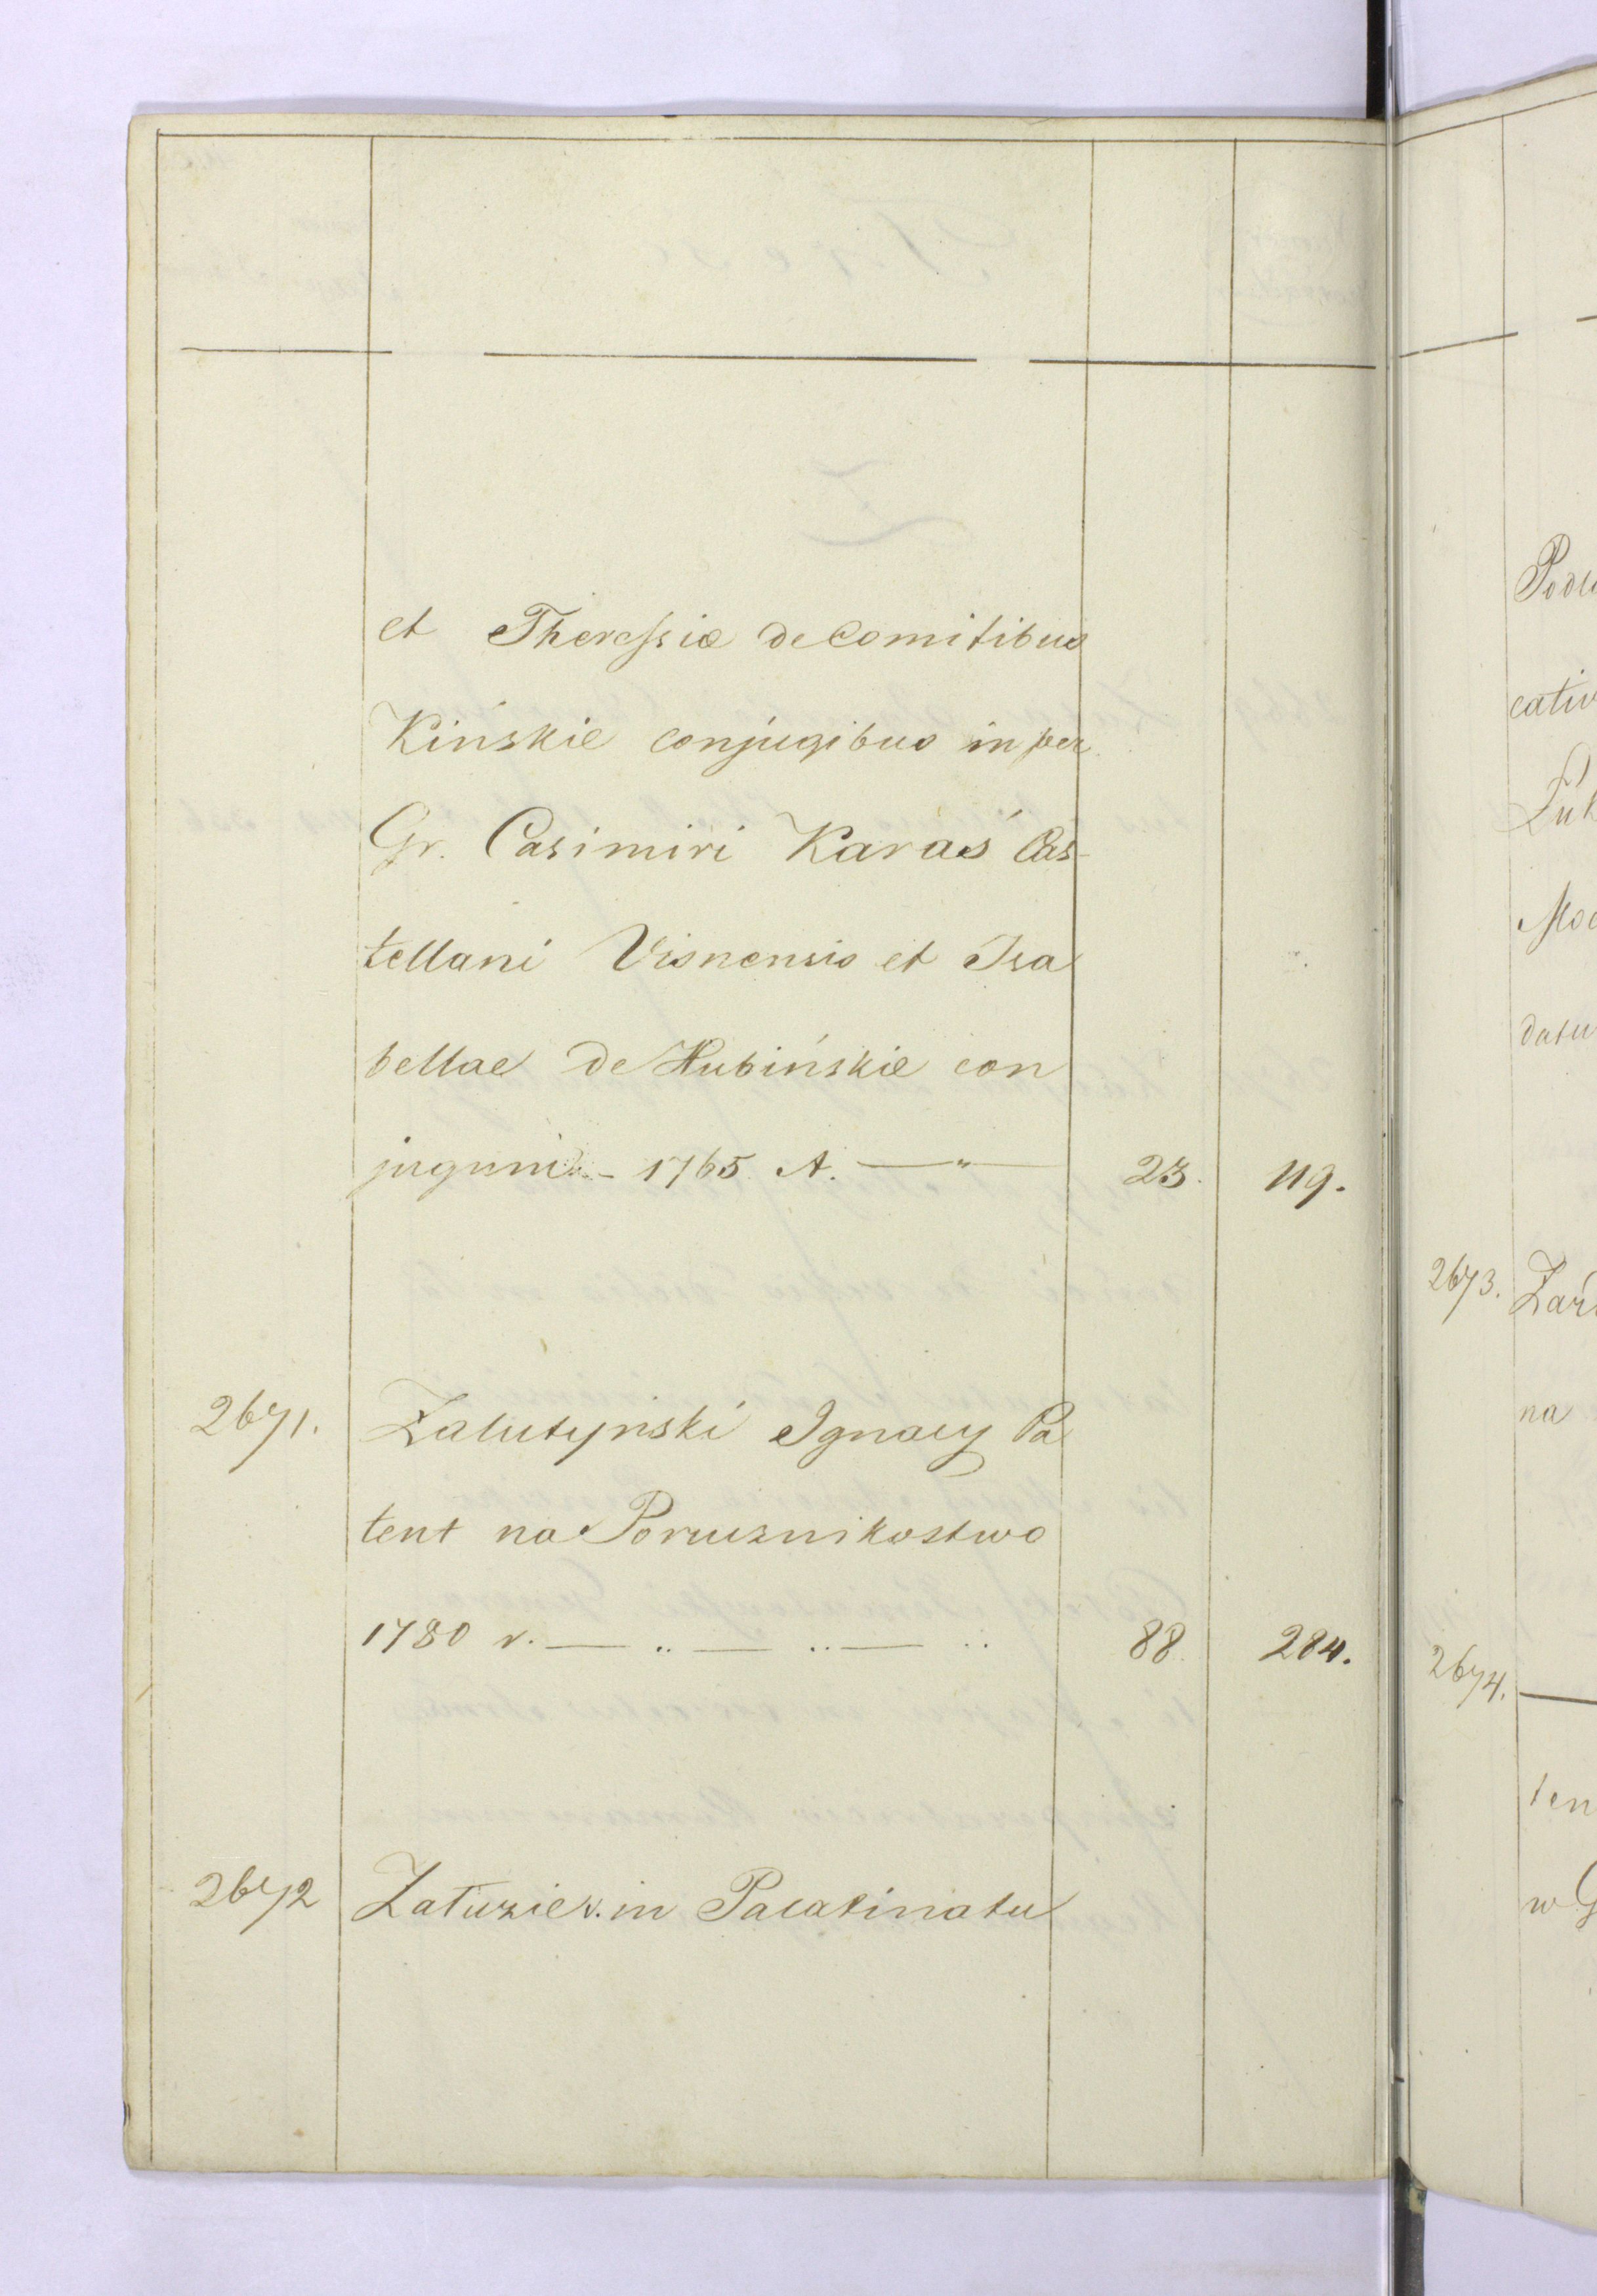 et Theressiæ de Comitibus
Kińskie conjugibus in per
Gr. Casimiri Karaś Cas-
tellani Visnensis et Isa
bellae de Hubińskie con
jugum - 1765. A. — " — 23. 119.
2671. Zalutyński Ignacy Pa
tent na Porucznikostwo
1780 r. — .. — .. — .. 88. 284.
2672 Załuzie v. in Palatinatu
cativ
datu
2673.
na
2674.
ten
w G